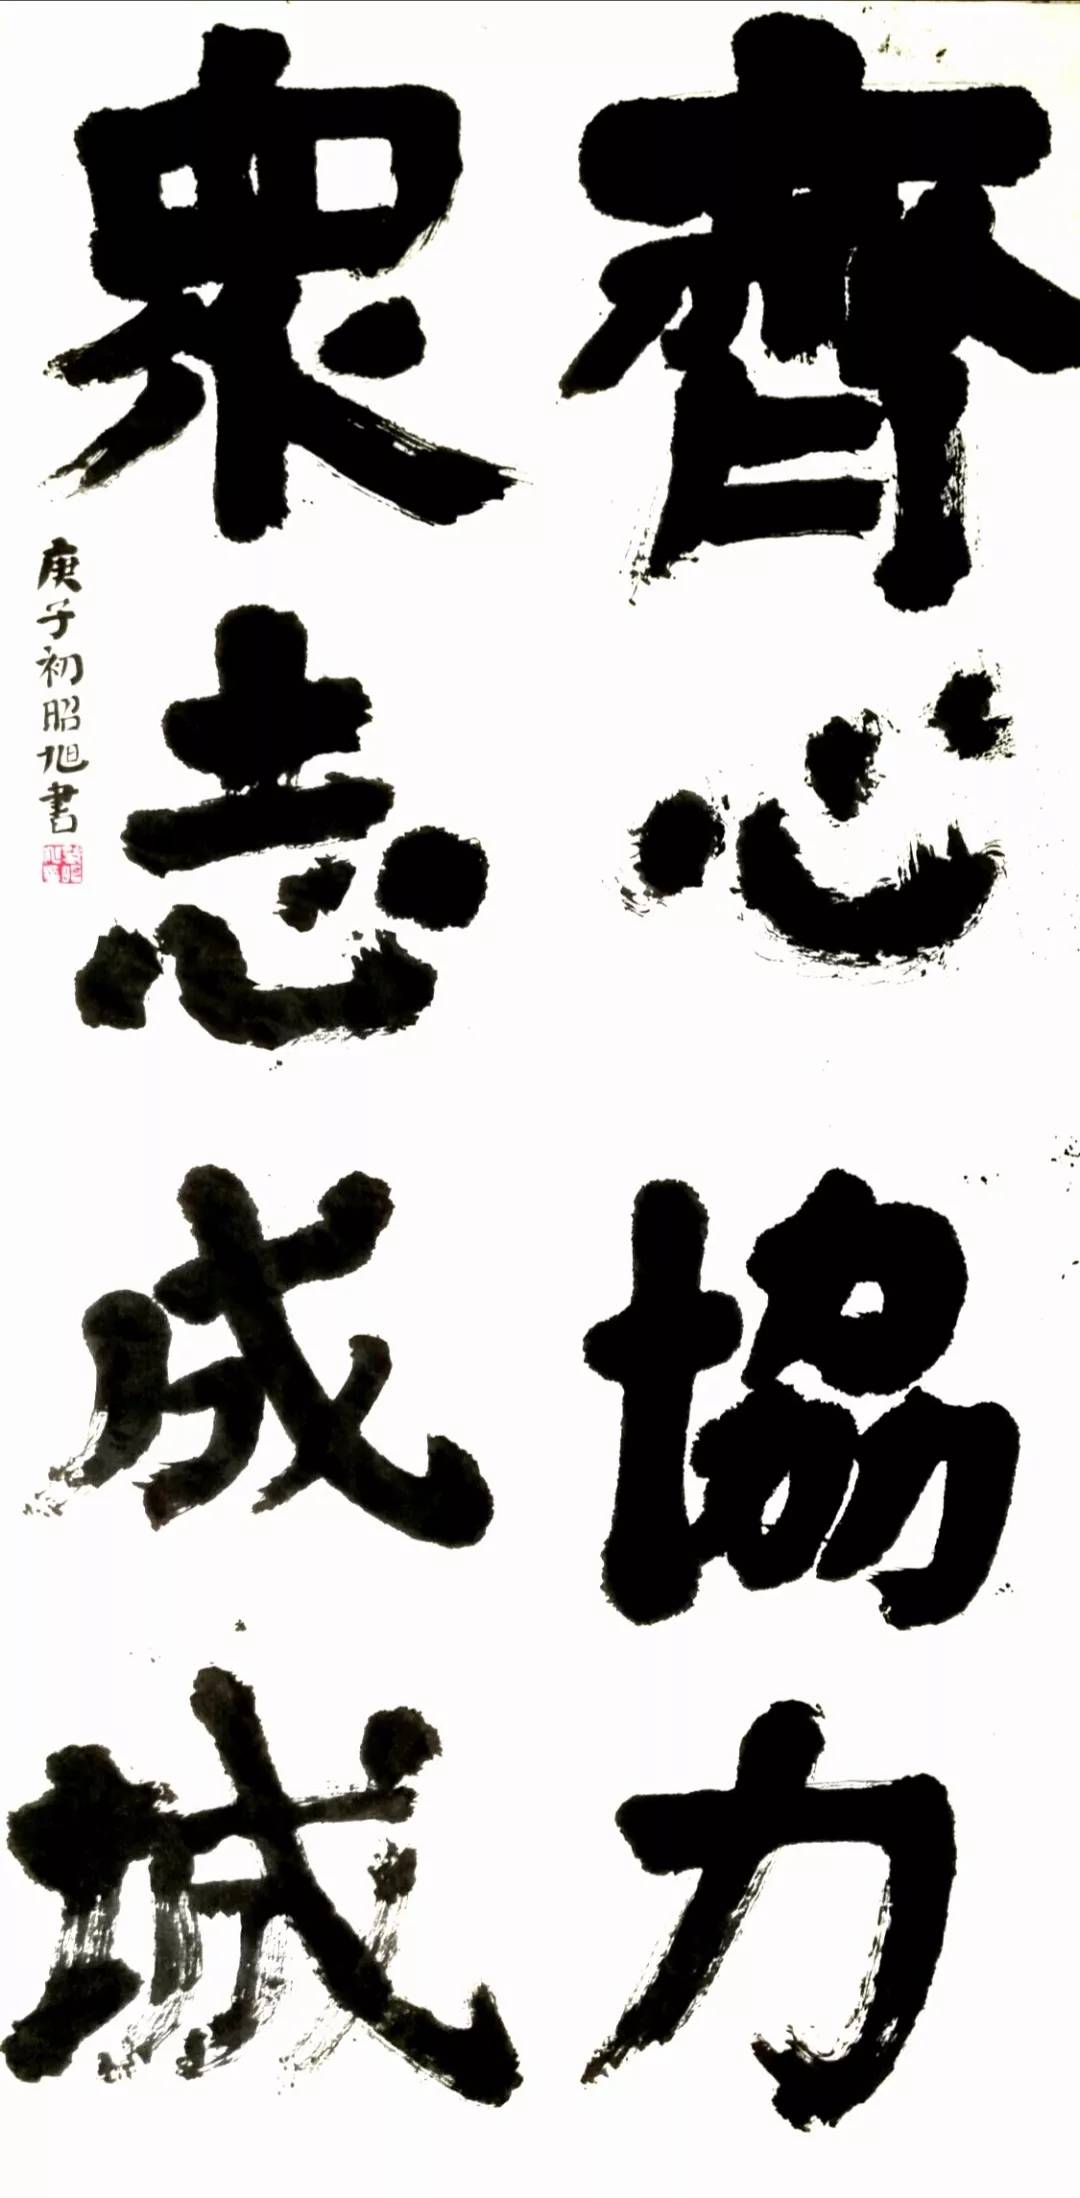 齊心協力
眾志成城
庚子初昭旭書